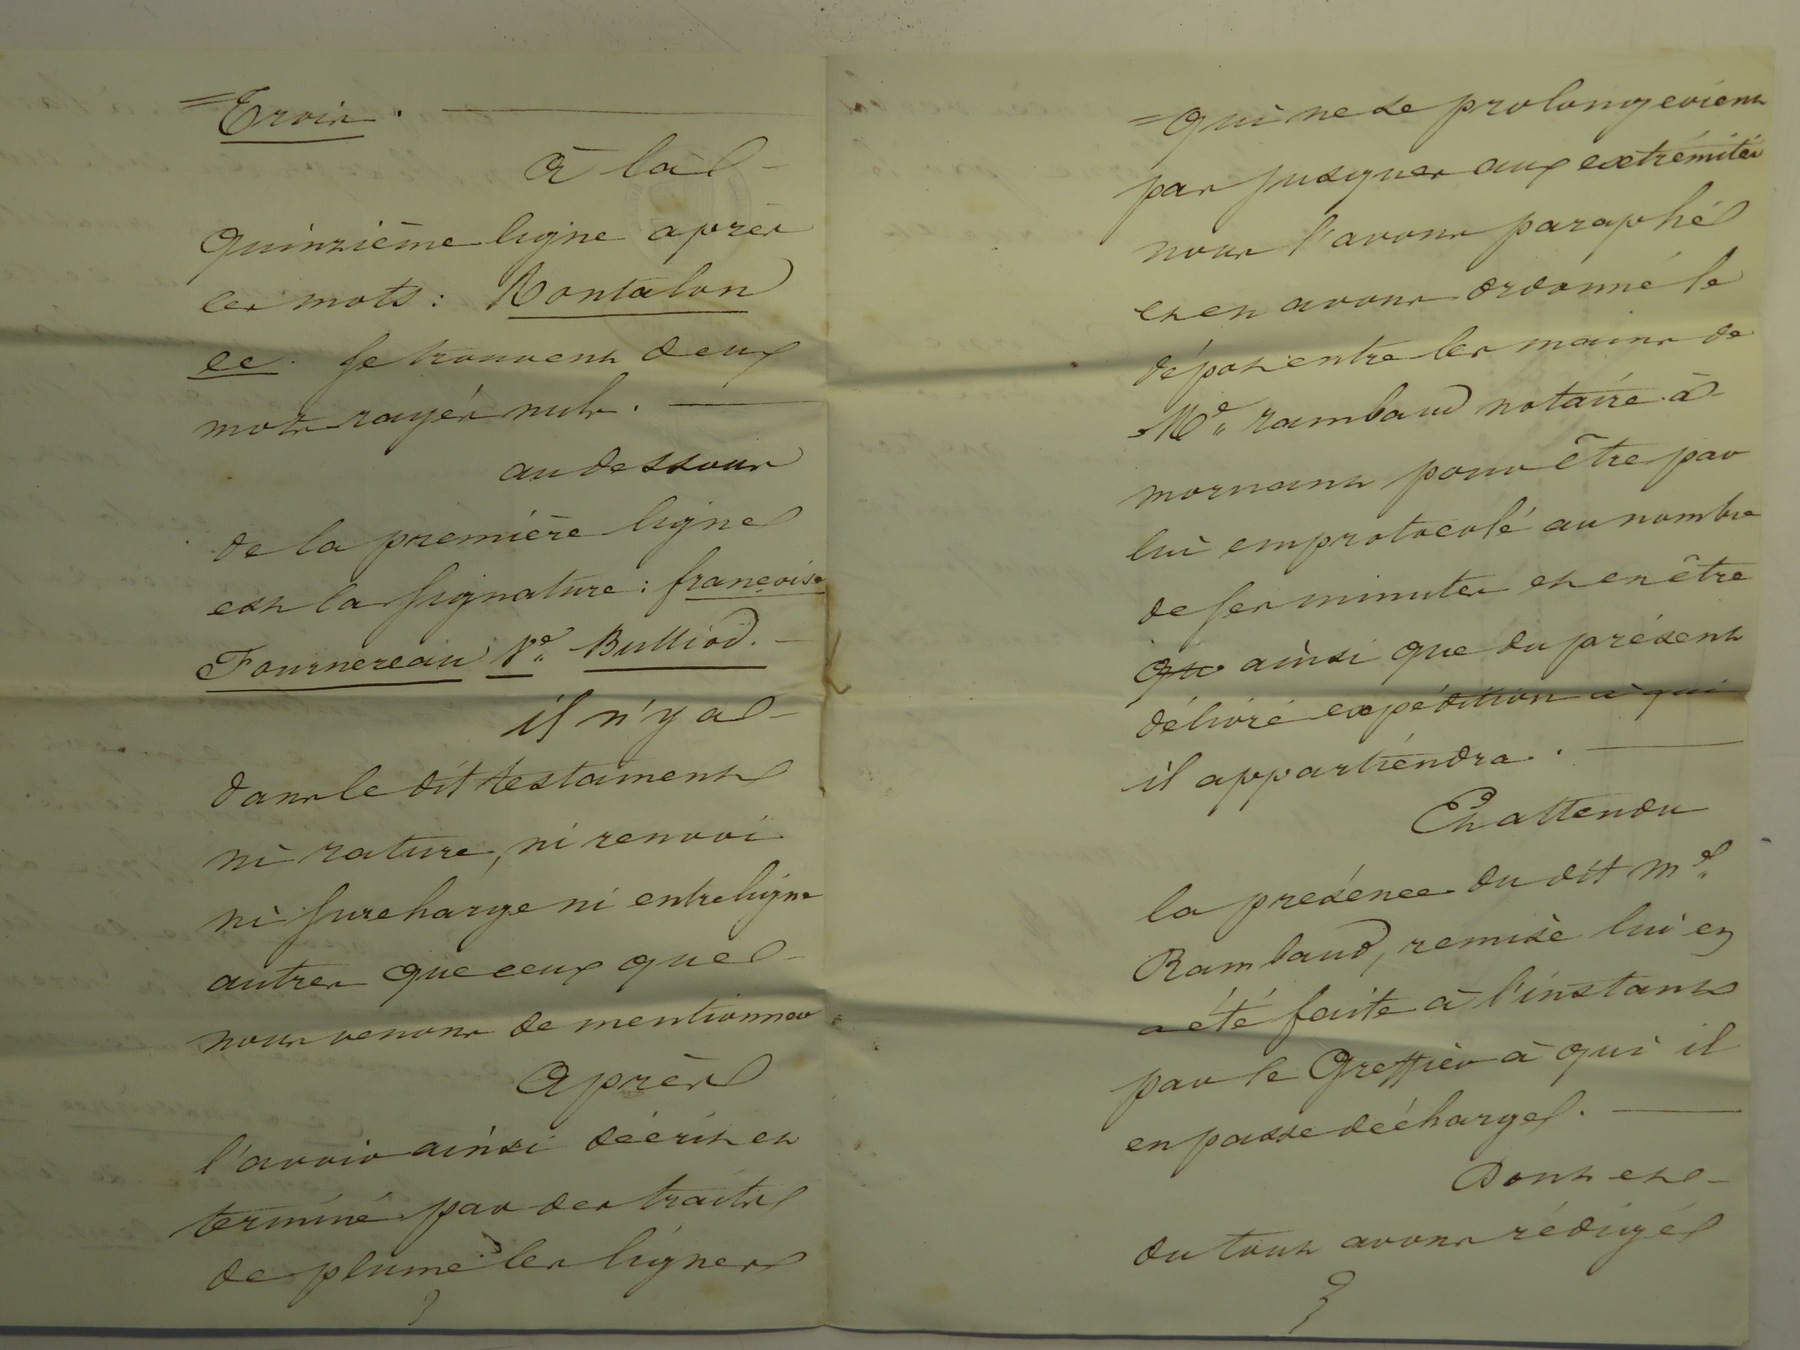 = Trois. 
à la
quinzième ligne après
les mots: Rontalon
ce. se trouvent deux
mots rayés nuls.
au dessous
de la première ligne
est la signature: françoise
Fournereau Ve. Bulliod.
il n'y a
dans le dit testament
ni rature, ni renvoi
ni surcharge ni entreligne
autres que ceux que
nous venons de mentionner
Après
l'avoir ainsi décrit et
terminé par des traits
de plume les lignes
= qui ne se prolongeoient
pas jusques aux extrémités
nous l'avons paraphé
et en avons ordonné le
dépot entre les mains de
Me. rambaud notaire à
mornant pour être par
lui emprotocolé au nombre
de ses minutes et en être
qu ainsi que du présent
délivré expédition à qui
il appartiendra.
Et attendu
la présence du dit me.
Rambaud, remise lui en
a été faite à l'instant
par le Greffier à qui il
en passe décharge.
Dont et
du tout avons rédigé